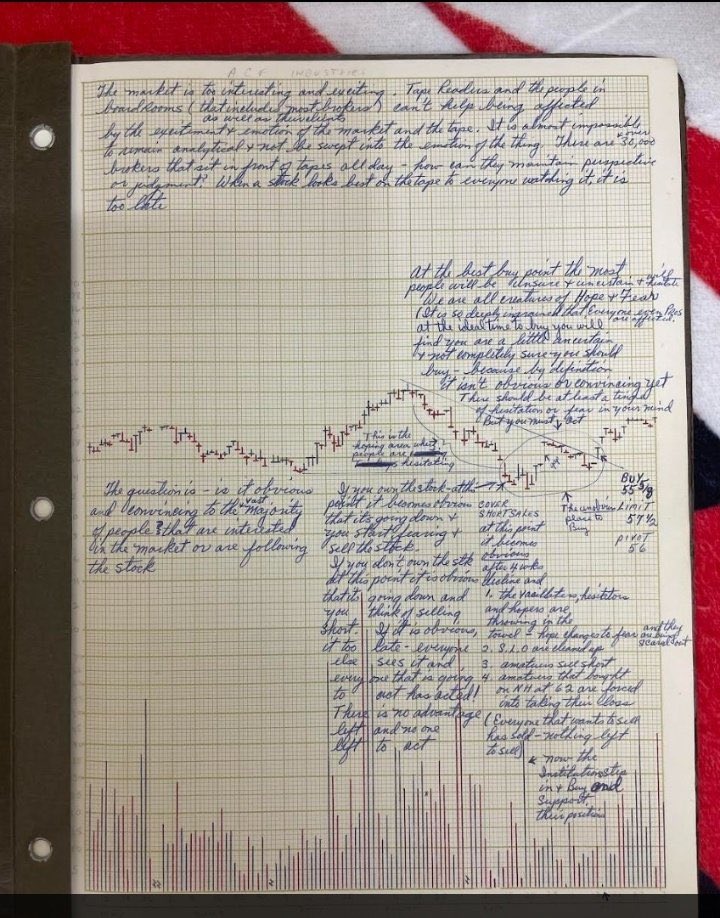 ACF INDUSTRIES
The market is too interesting and exciting. Tape Readers and the people in
boardrooms (that includes most brokers) can't help being affected
as well as their clients
by the excitement & emotion of the market and the tape. It is almost impossible
to remain analytical & not be swept into the emotion of the thing. There are over 30,000
brokers that sit in front of tapes all day - how can they maintain perspective
or judgment? When a stock looks best on the tape to everyone watching it, it is
too late
At the best buy point the most
people will be unsure & uncertain & will hesitate
We are all creatures of Hope & Fear
(It is so deeply ingrained that everyone even Pros are affected.
at the ideal time to buy you will
find you are a little uncertain
& not completely sure you should
buy - because by definition
it isn't obvious or convincing yet
There should be at least a tinge
of hesitation or fear in your mind
But you must act
This is the
hoping area where
people are
hesitating
BUY
55 5/8
LIMIT
57 1/2
PIVOT
56
The unobvious
place to
Buy
The question is - is it obvious
and convincing to the vast majority
of people? that are interested
in the market or are following
the stock
If you own the stock - at this
point it becomes obvious
that it's going down &
you start fearing &
sell the stock.
If you don't own the stk
at this point it is obvious
that it's going down and
you think of selling
short. If it is obvious,
it too late - everyone
else sees it and
every one that is going
to act has acted!
There is no advantage
left and no one
left to act
COVER
SHORT SALES
at this point
it becomes
obvious
after 4 wks
decline and
1. the vacillators, hesitators
and hopers are
throwing in the
towel - hope changes to fear and they are being scared out
2. S.L.O are cleaned up
3. amateurs sell short
4. amateurs that bought
on NH at 62 are forced
into taking their loss
(Everyone that wants to sell
has sold - nothing left
to sell)
* now the
Institutions step
in & Buy and
Support
their positions